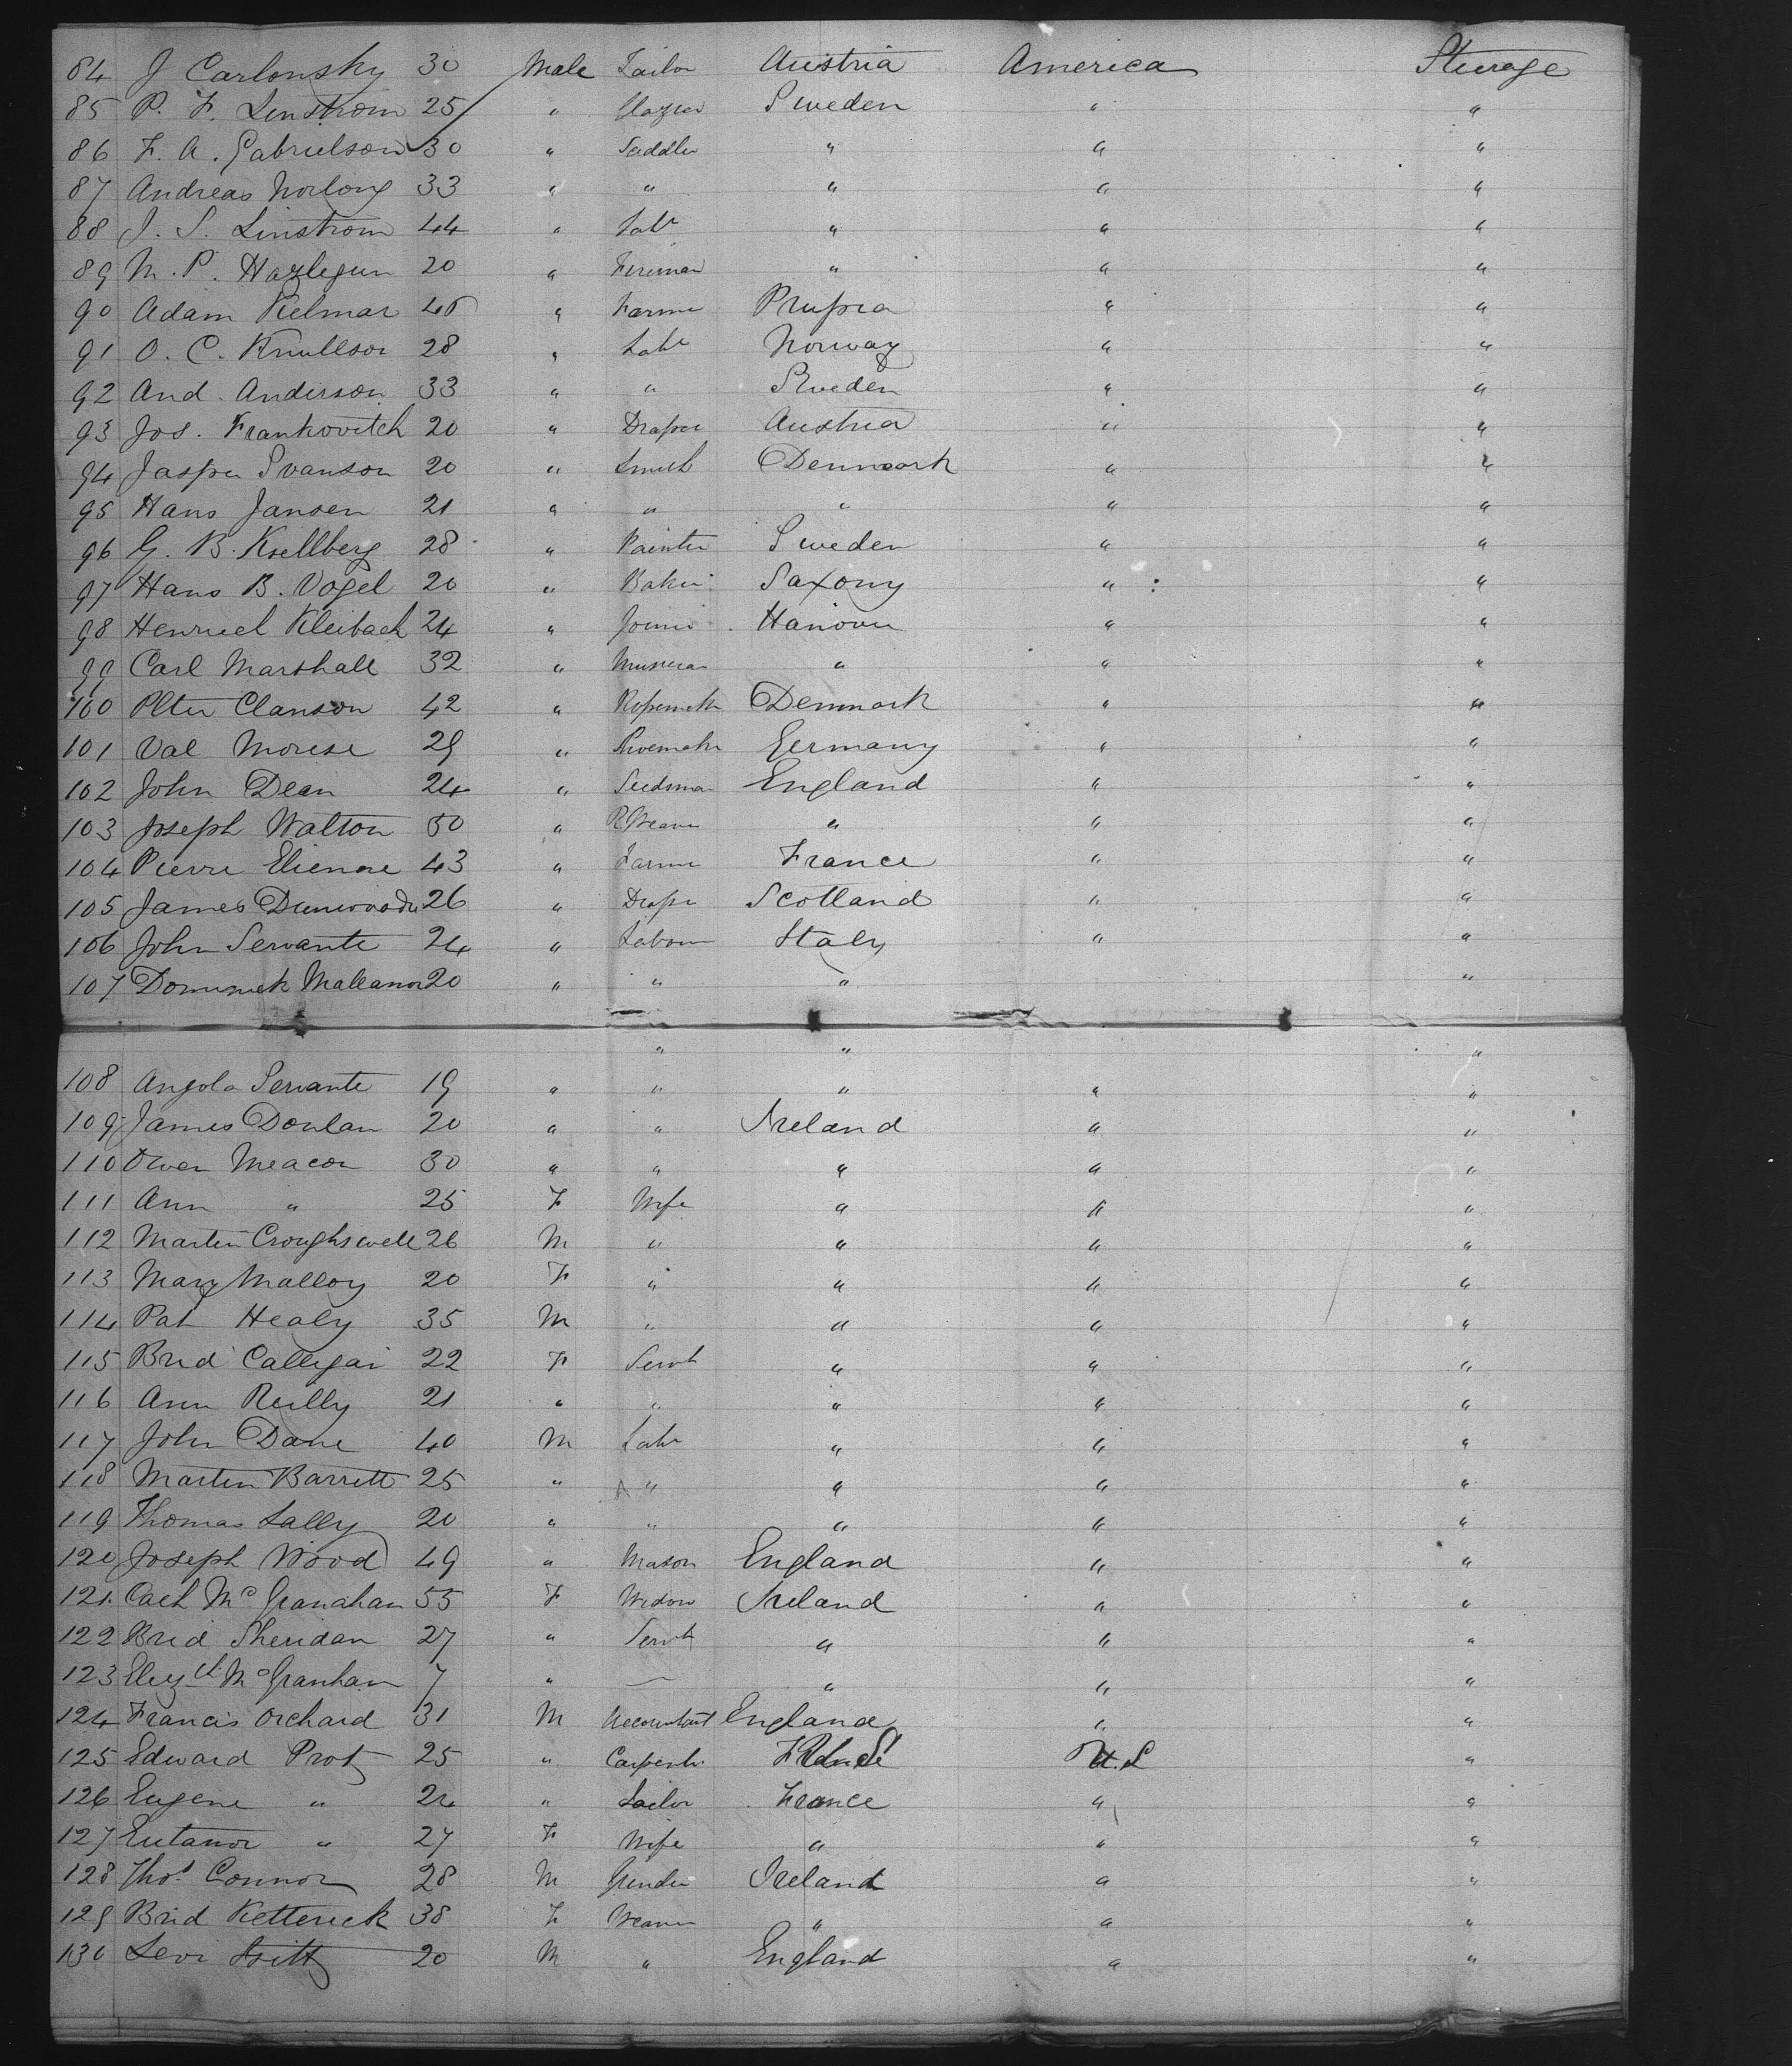 84 J Carlonsky 30 Male Tailor Austria America Steerage
85 P. F. Linstrom 25 " Glazier Sweden " "
86 F. A. Gabrielson 30 " Saddler " " "
87 Andreas Norlong 33 " " " " "
88 J. S. Linstrom 44 " Labr " " "
89 M. P. Hazlegun 20 " Fireman " " "
90 Adam Kelmar 46 " Farmer Prussia " "
91 O. C. Knullson 28 " Labr Norway " "
92 And. Anderson 33 " " Sweden " "
93 Jos. Frankovitch 20 " Draper Austria " "
94 Jasper Svanson 20 " Smith Denmark " "
95 Hans Jansen 21 " " " " "
96 G. B. Kjellberg 28 " Painter Sweden " "
97 Hans B. Vogel 20 " Baker Saxony " "
98 Henrich Kleibach 24 " Joiner Hanover " "
99 Carl Marshall 32 " Musician " " "
100 Peter Clanson 42 " Ropemakr Denmark " "
101 Val Morese 29 " Shoemakr Germany " "
102 John Dean 24 " Seedsman England " "
103 Joseph Walton 50 " Weaver " " "
104 Pierre Etienne 43 " Farmer France " "
105 James Dunwoodie 26 " Draper Scotland " "
106 John Servante 24 " Labour Italy " "
107 Dominick 20 " " " "
" " "
108 Angola Servante 19 " " " " "
109 James Donlan 20 " " Ireland " "
110 Owen Meacon 30 " " " " "
111 Ann " 25 F Wife " " "
112 Martin Croughswell 26 M " " " "
113 Mary Malloy 20 F " " " "
114 Pat Healy 35 M " " " "
115 Brid Calligan 22 F Servt " " "
116 Ann Reilly 21 " " " " "
117 John Dane 40 M Labr " " "
118 Martin Barrett 25 " " " " "
119 Thomas Lally 20 " " " " "
120 Joseph Wood 49 " Mason England " "
121 Cath McGranahan 55 F Widow Ireland " "
122 Brid Sheridan 27 " Servt " " "
123 Elizth McGranham 7 " — " " "
124 Francis Orchard 31 M Accountant England " "
125 Edward Prot 25 " Carpentr U.S "
126 Eugene " 24 " Tailor France " "
127 " 27 F Wife " " "
128 Thos Connor 28 M Grinder Ireland " "
129 Brid Ketterick 38 F Weaver " " "
130 Levi 20 M " England " "